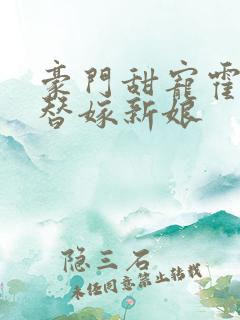 豪门甜宠霍
替嫁新娘
隐三石
未经同意禁止转载